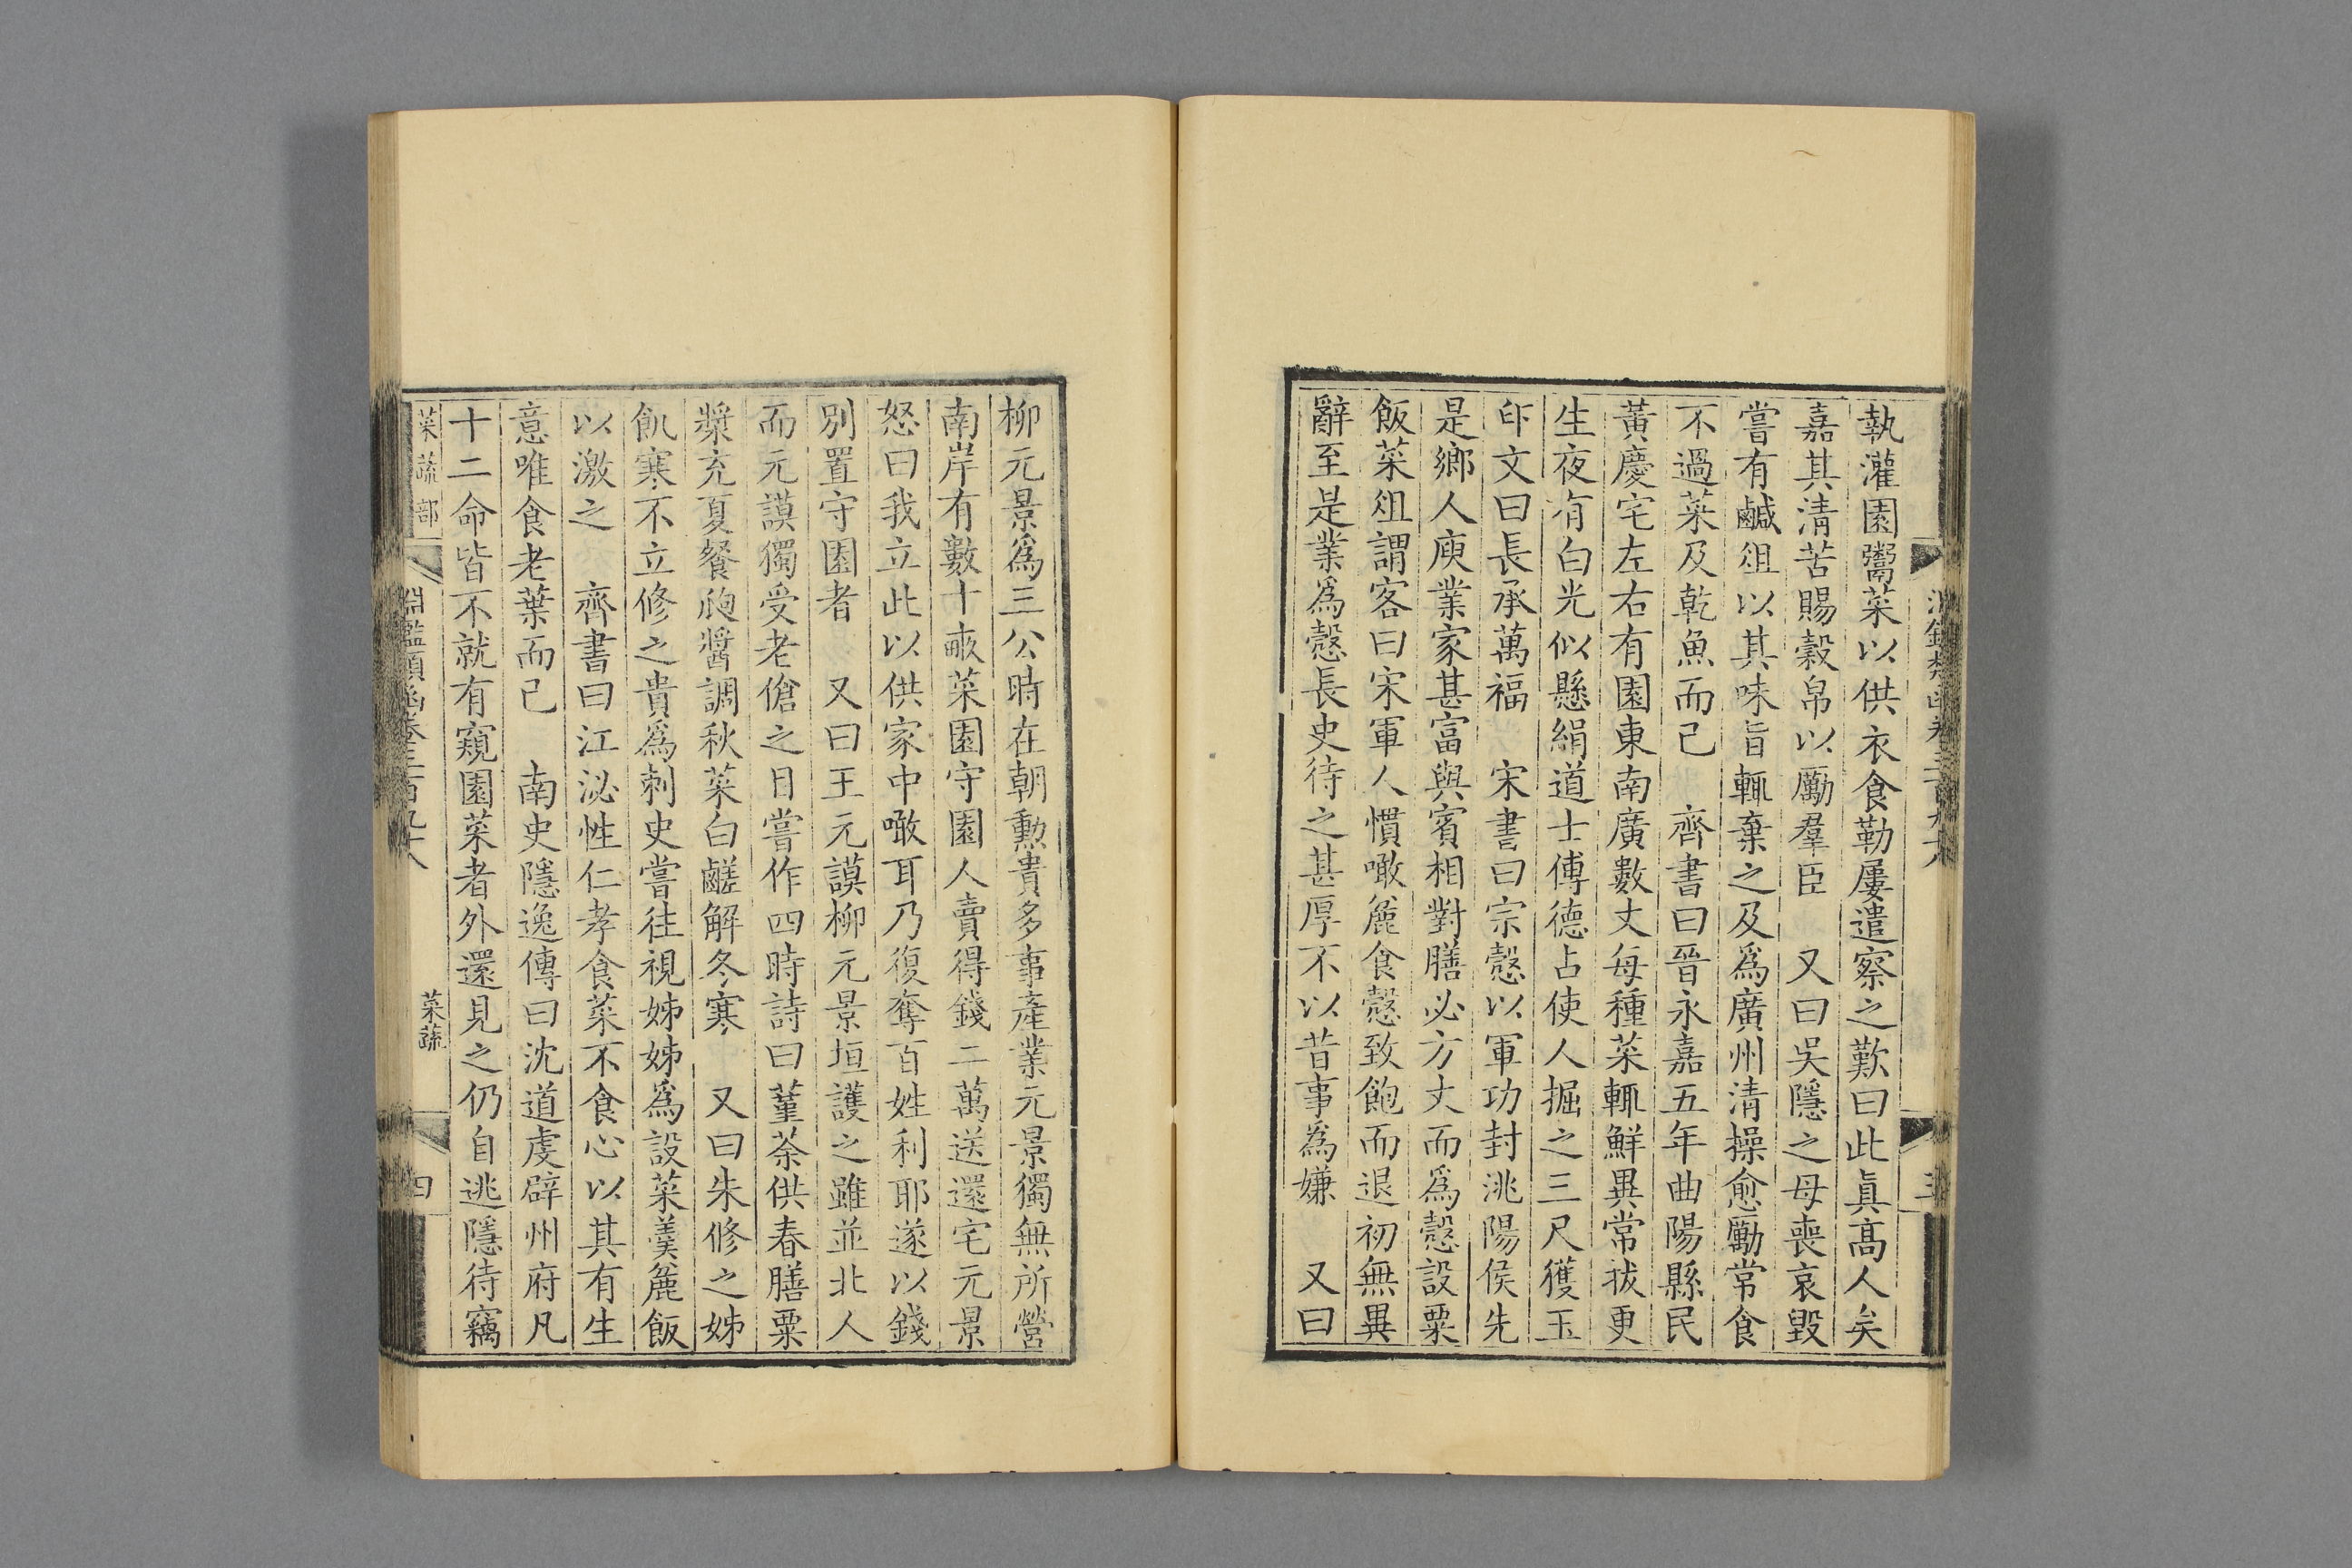 執灌園鬻菜以供衣食勒屢遣察之歎曰此眞髙人矣
嘉其清苦賜穀帛以勵羣臣　又曰吳隱之母喪哀毀
嘗有鹹俎以其味旨輒棄之及爲廣州清操愈勵常食
不過菜及乾魚而已　齊書曰晉永嘉五年曲陽縣民
黃慶宅左右有園東南廣數丈每種菜輒鮮異常拔更
生夜有白光似懸絹道士傅德占使人掘之三尺獲玉
印文曰長承萬福　宋書曰宗慤以軍功封洮陽侯先
是鄉人庾業家甚富與賓相對膳必方丈而爲慤設粟
飯菜俎謂客曰宋軍人慣噉麄食慤致飽而退初無異
辭至是業爲慤長史待之甚厚不以昔事爲嫌　又曰
柳元景爲三公時在朝勳貴多事產業元景獨無所營
南岸有數十畞菜園守園人賣得錢二萬送還宅元景
怒曰我立此以供家中噉耳乃復奪百姓利耶遂以錢
別置守園者　又曰王元謨柳元景垣護之雖並北人
而元謨獨受老傖之目嘗作四時詩曰堇荼供春膳粟
漿充夏餐瓝醬調秋菜白鹺解冬寒　又曰朱修之姊
飢寒不立修之貴爲刺史嘗往視姊姊爲設菜羹麄飯
以激之　齊書曰江泌性仁孝食菜不食心以其有生
意唯食老葉而已　南史隱逸傳曰沈道虔辟州府凡
十二命皆不就有窺園菜者外還見之仍自逃隱待竊
菜蔬部
淵鑑類函卷三百九十八
菜蔬
四